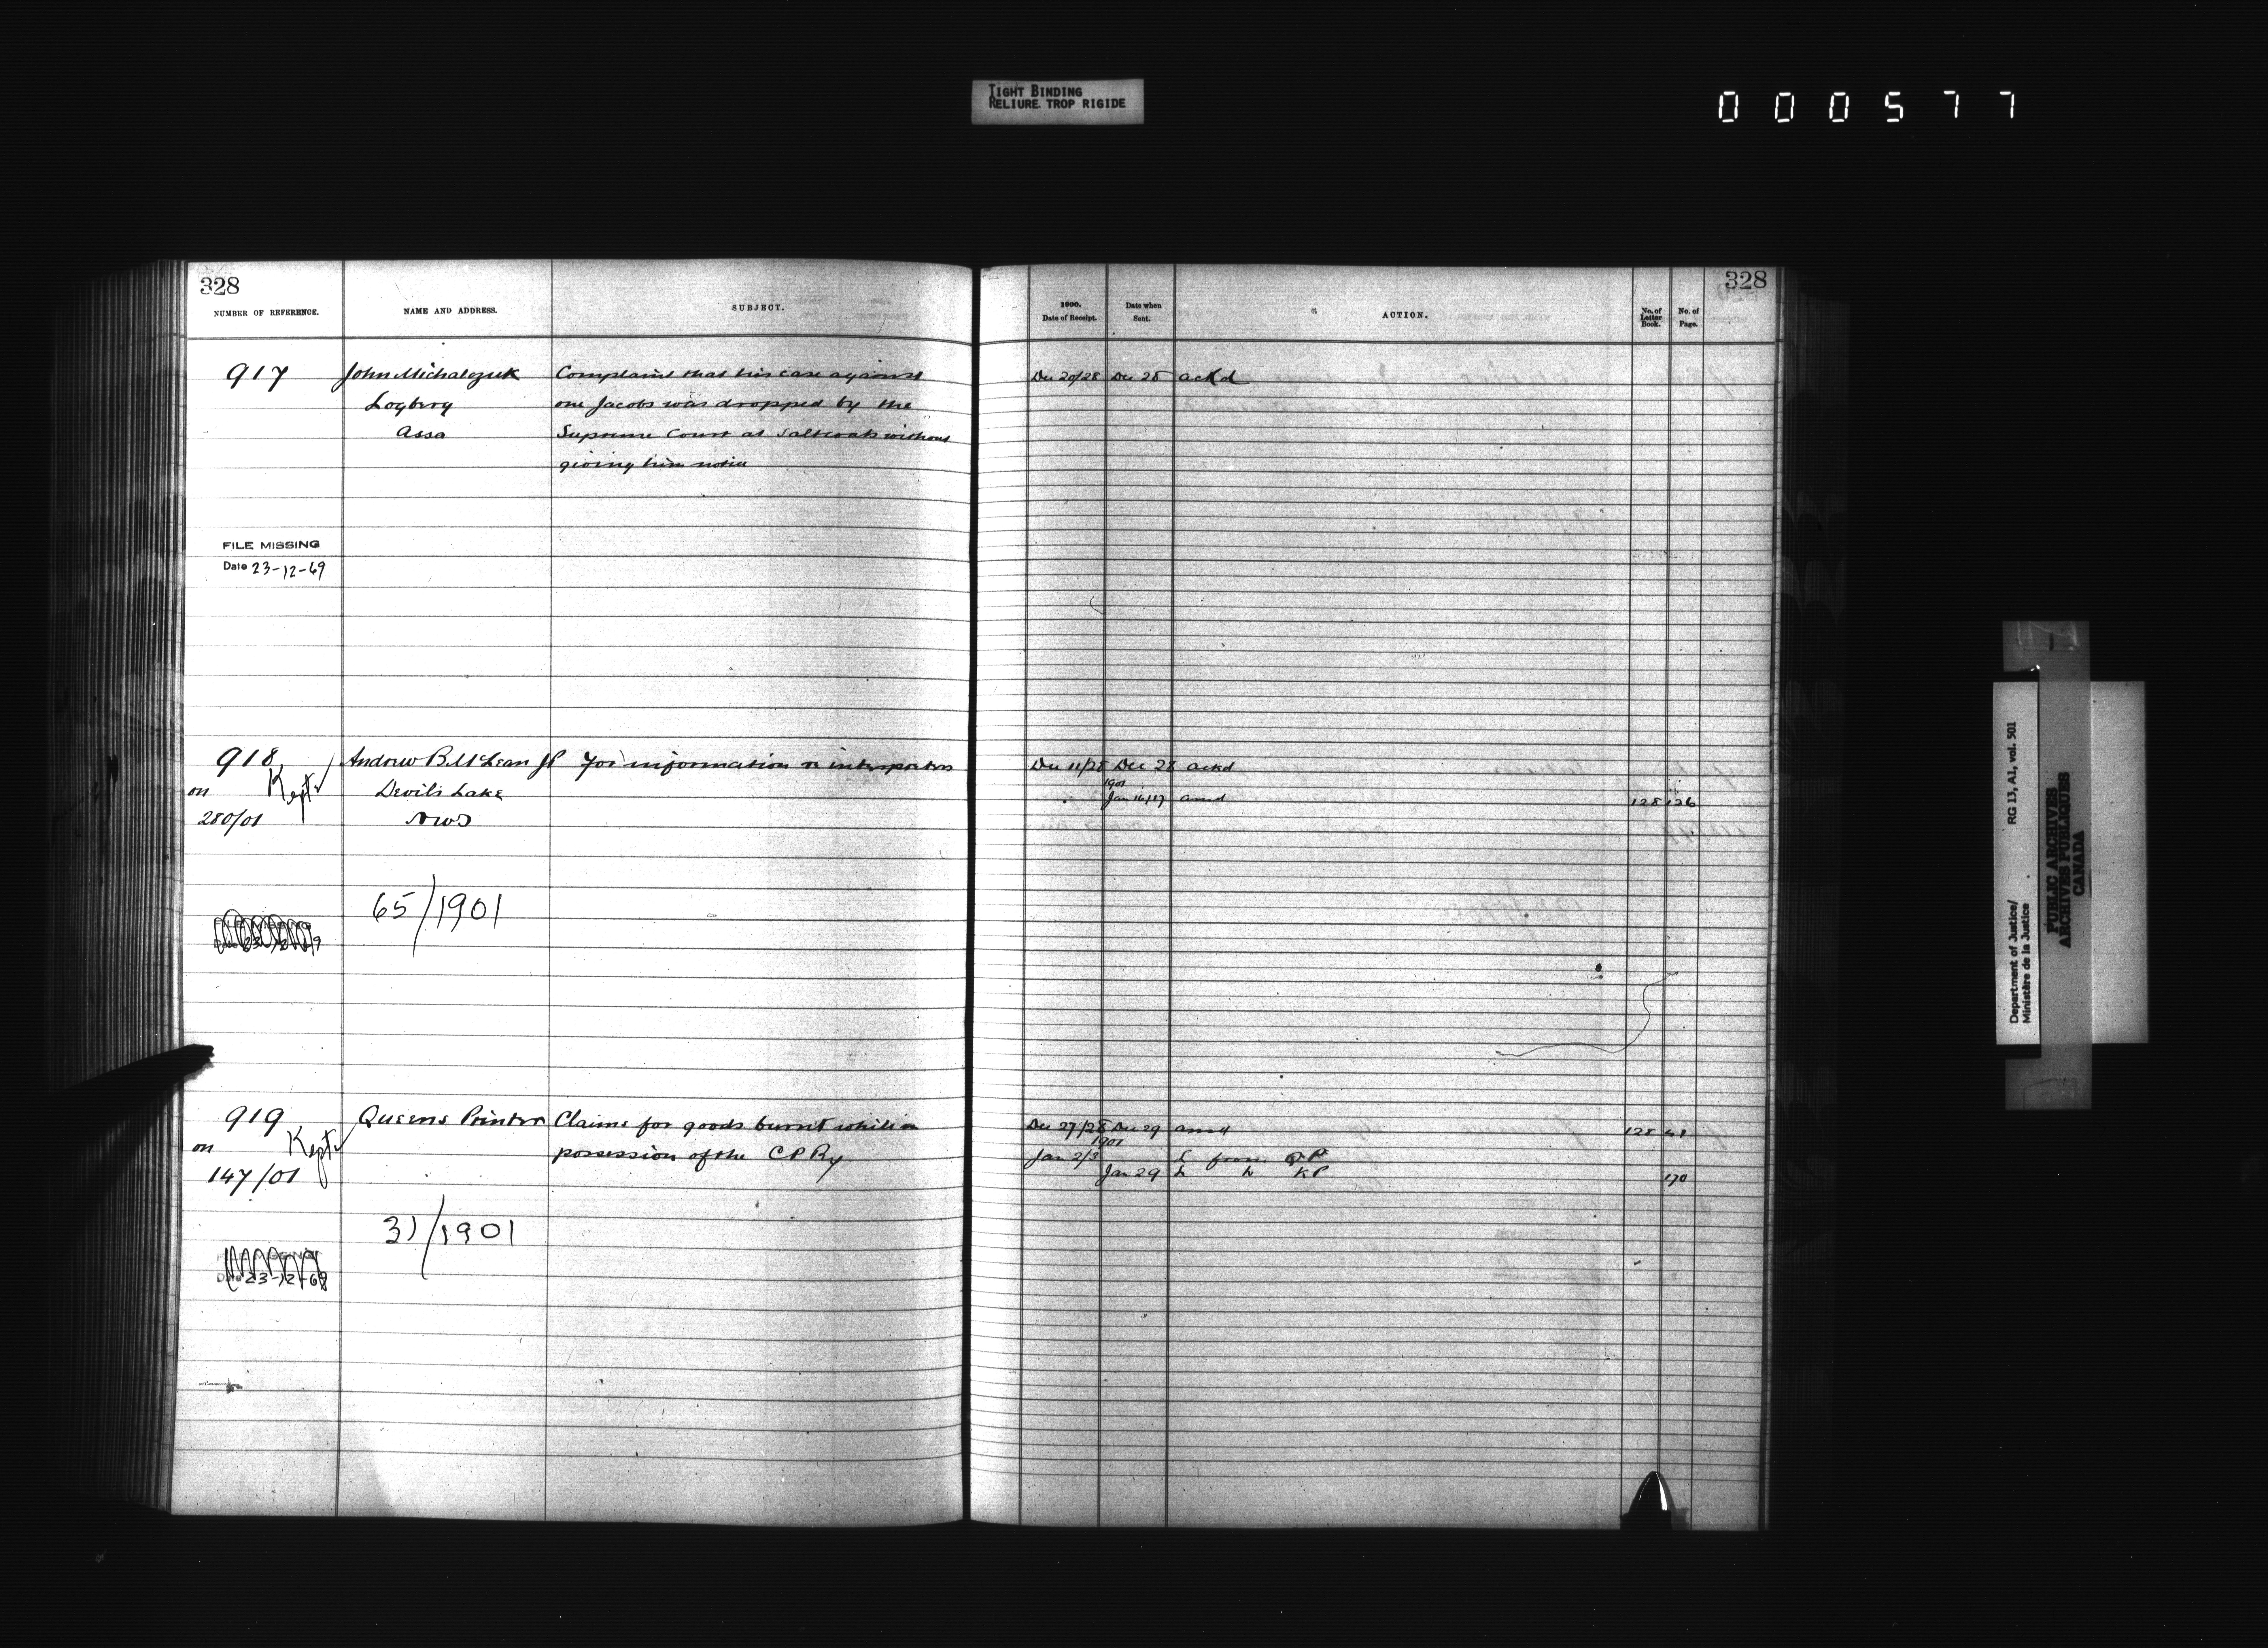 TIGHT BINDING
RELIURE TROP RIGIDE
000577
328
NUMBER OF REFERENCE.
NAME AND ADDRESS.
SUBJECT.
917
John Michalczuk
Logberg
Assa
Complaint that his case against
one Jacobs was dropped by the
Supreme Court at Saltcoats without
giving him notice
FILE MISSING
Date 23-12-69
918
on
280/01
Kept
Andrew B. McLean JP
Devils Lake
NWT
For information re
65/1901
919
on
147/01
Kept
Queens Printer
Claims for goods burnt while in
possession of the C P Ry
31/1901
Date 23-12-69
328
1900.
Date of Receipt.
Date when
Sent.
ACTION.
No. of
Letter
Book.
No. of
Page.
Dec 20/28 Dec 28 ackd
Dec 11/28 Dec 28 ackd
1901
Jan 16/17 ansd 128 126
Dec 27/28 Dec 29 ansd 128 41
1901
Jan 2/3 L from QP
Jan 29 L to KP 170
Department of Justice/
Ministère de la Justice
RG 13, A1, vol. 501
PUBLIC ARCHIVES
ARCHIVES PUBLIQUES
CANADA